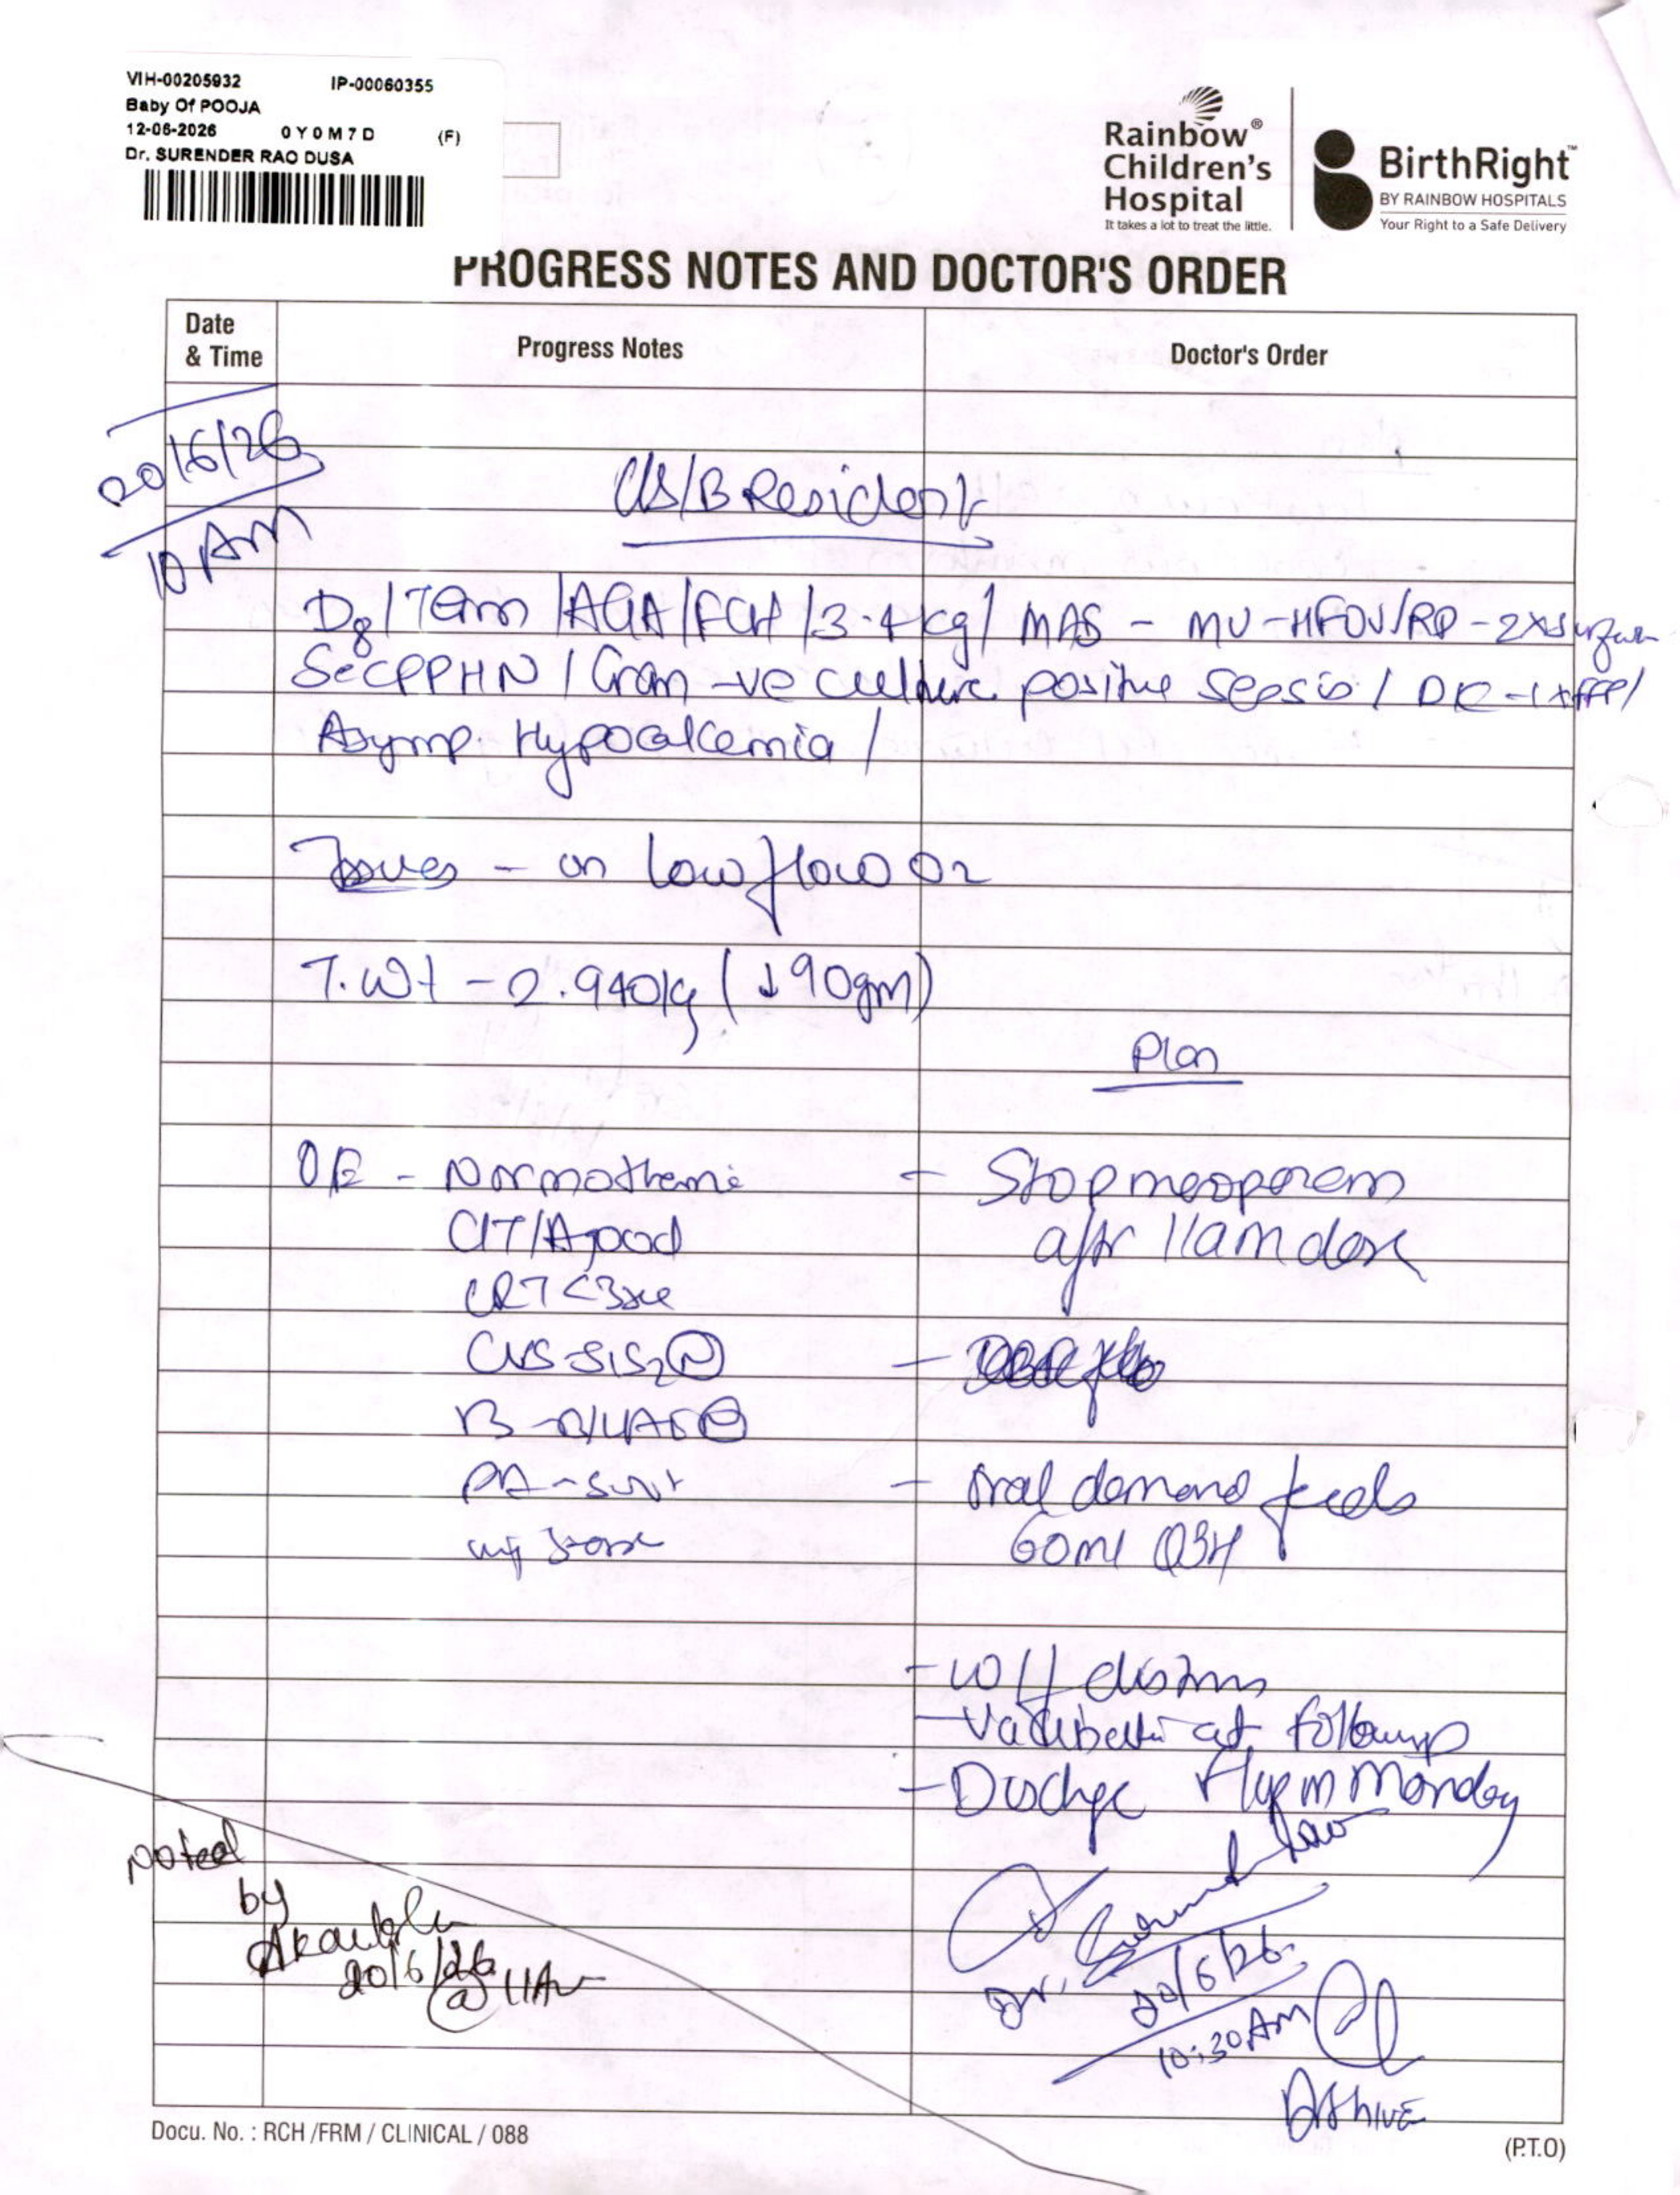 VIH-00205932 IP-00060355
Baby Of POOJA
12-06-2026 0Y0M7D (F)
Dr. SURENDER RAO DUSA
Rainbow®
Children's
Hospital
It takes a lot to treat the little.
BirthRight™
BY RAINBOW HOSPITALS
Your Right to a Safe Delivery
PROGRESS NOTES AND DOCTOR'S ORDER
Date & Time
Progress Notes
Doctor's Order
20/6/26
10 AM
C/S/B Resident
D8/Term/AGA/FCH/3.4kg/MAS - MV-HFOV/RD-2X
Sec PPHN/Gram -ve culture positive sepsis/DIC-1xFFP/
Asymp. Hypocalcemia/
Issues - on low flow O2
T.Wt - 2.940kg (↓90gm)
Plan
O/E - Normothermic
C/T/A good
CRT <3sec
CVS-S1S2 N
PA-soft
- Stop meropenem
after 11am dose
- Oral demand feeds
60ml Q3H
- w/f
- at followup
- Discharge F/up on Monday
Dr.
20/6/26
10:30AM
Noted
by
20/6/26
@ 11AM
Docu. No. : RCH /FRM / CLINICAL / 088
(P.T.O)